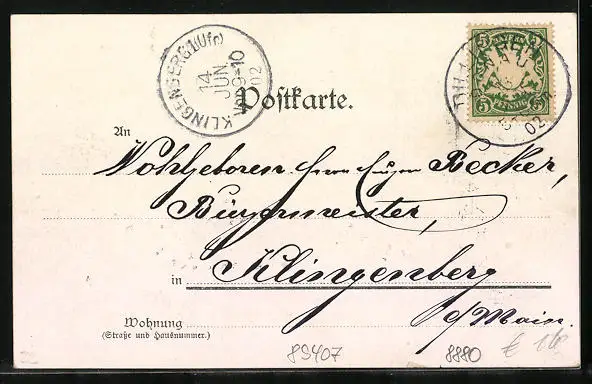 KLINGENBERG (Ufr)
14
JUN
02
BAYERN
5 5
5 PFENNIG 5
02
Postkarte.
An
Wohlgeboren Herrn Eugen Becker,
Bürgermeister,
in Klingenberg
a/Main.
Wohnung
(Straße und Hausnummer.)
89407 8880